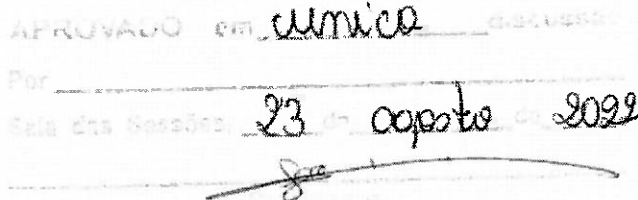 APROVADO em única discussão
Por
Sala das Sessões, 23 de agosto de 2022